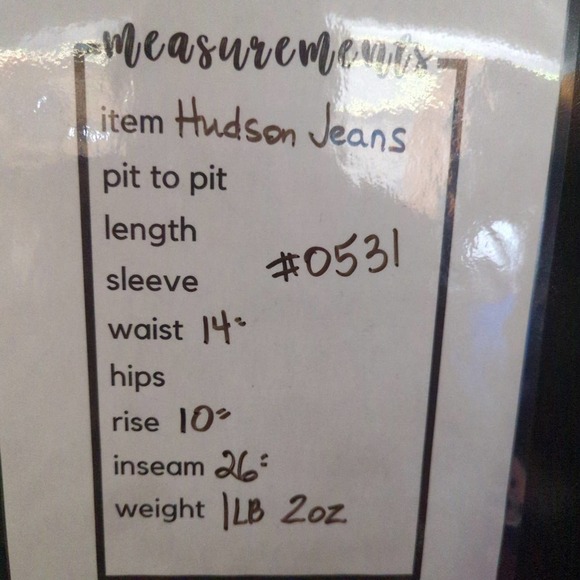 measurements
item Hudson Jeans
pit to pit
length
#0531
sleeve
waist 14"
hips
rise 10"
inseam 26"
weight 1LB 2oz